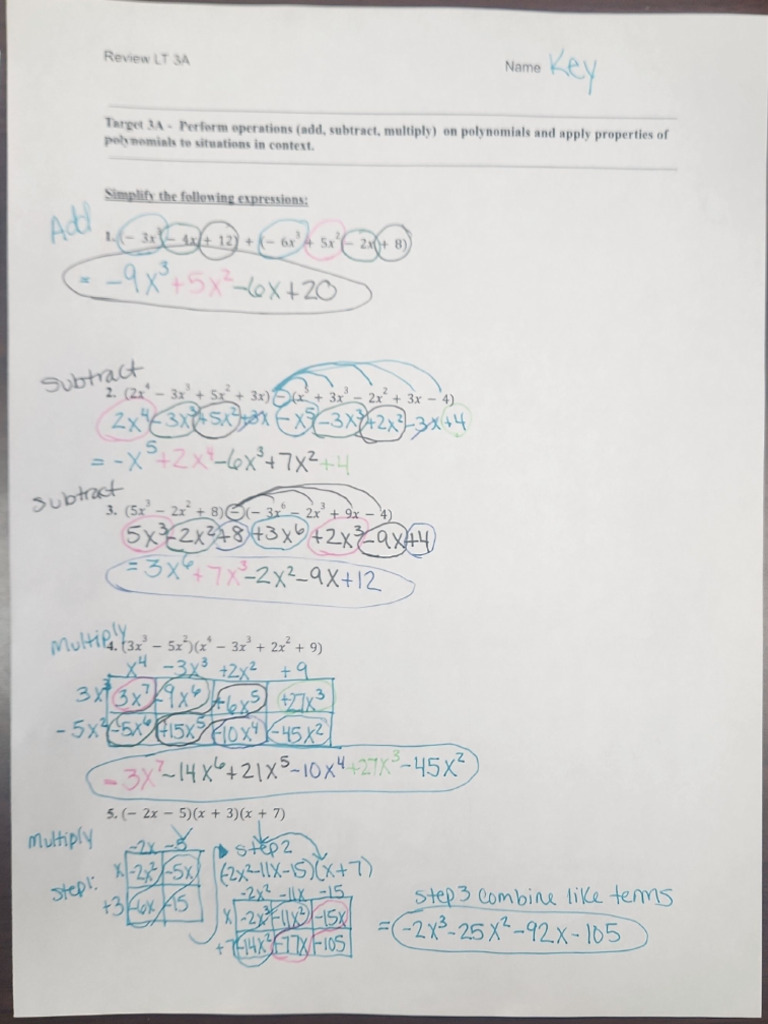 Review LT 3A
Name Key
Target 3A - Perform operations (add, subtract, multiply) on polynomials and apply properties of
polynomials to situations in context.
Simplify the following expressions:
Add
1. (- 3x³ - 4x + 12) + (- 6x³ + 5x² - 2x + 8)
= -9x³ + 5x² - 6x + 20
Subtract
2. (2x⁴ - 3x³ + 5x² + 3x) - (x⁵ + 3x³ - 2x² + 3x - 4)
2x⁴ - 3x³ + 5x² + 3x - x⁵ - 3x³ + 2x² - 3x + 4
= -x⁵ + 2x⁴ - 6x³ + 7x² + 4
Subtract
3. (5x³ - 2x² + 8) - (- 3x⁶ - 2x³ + 9x - 4)
5x³ - 2x² + 8 + 3x⁶ + 2x³ - 9x + 4
= 3x⁶ + 7x³ - 2x² - 9x + 12
Multiply
4. (3x³ - 5x²)(x⁴ - 3x³ + 2x² + 9)
x⁴ -3x³ +2x² +9
3x³ 3x⁷ -9x⁶ +6x⁵ +27x³
-5x² -5x⁶ +15x⁵ -10x⁴ -45x²
= 3x⁷ - 14x⁶ + 21x⁵ - 10x⁴ + 27x³ - 45x²
5. (- 2x - 5)(x + 3)(x + 7)
Multiply
Step1:
-2x -5
x -2x² -5x
+3 -6x -15
step 2
(-2x²-11x-15)(x+7)
-2x² -11x -15
x -2x³ -11x² -15x
+7 -14x² -77x -105
Step 3 combine like terms
= -2x³ - 25x² - 92x - 105